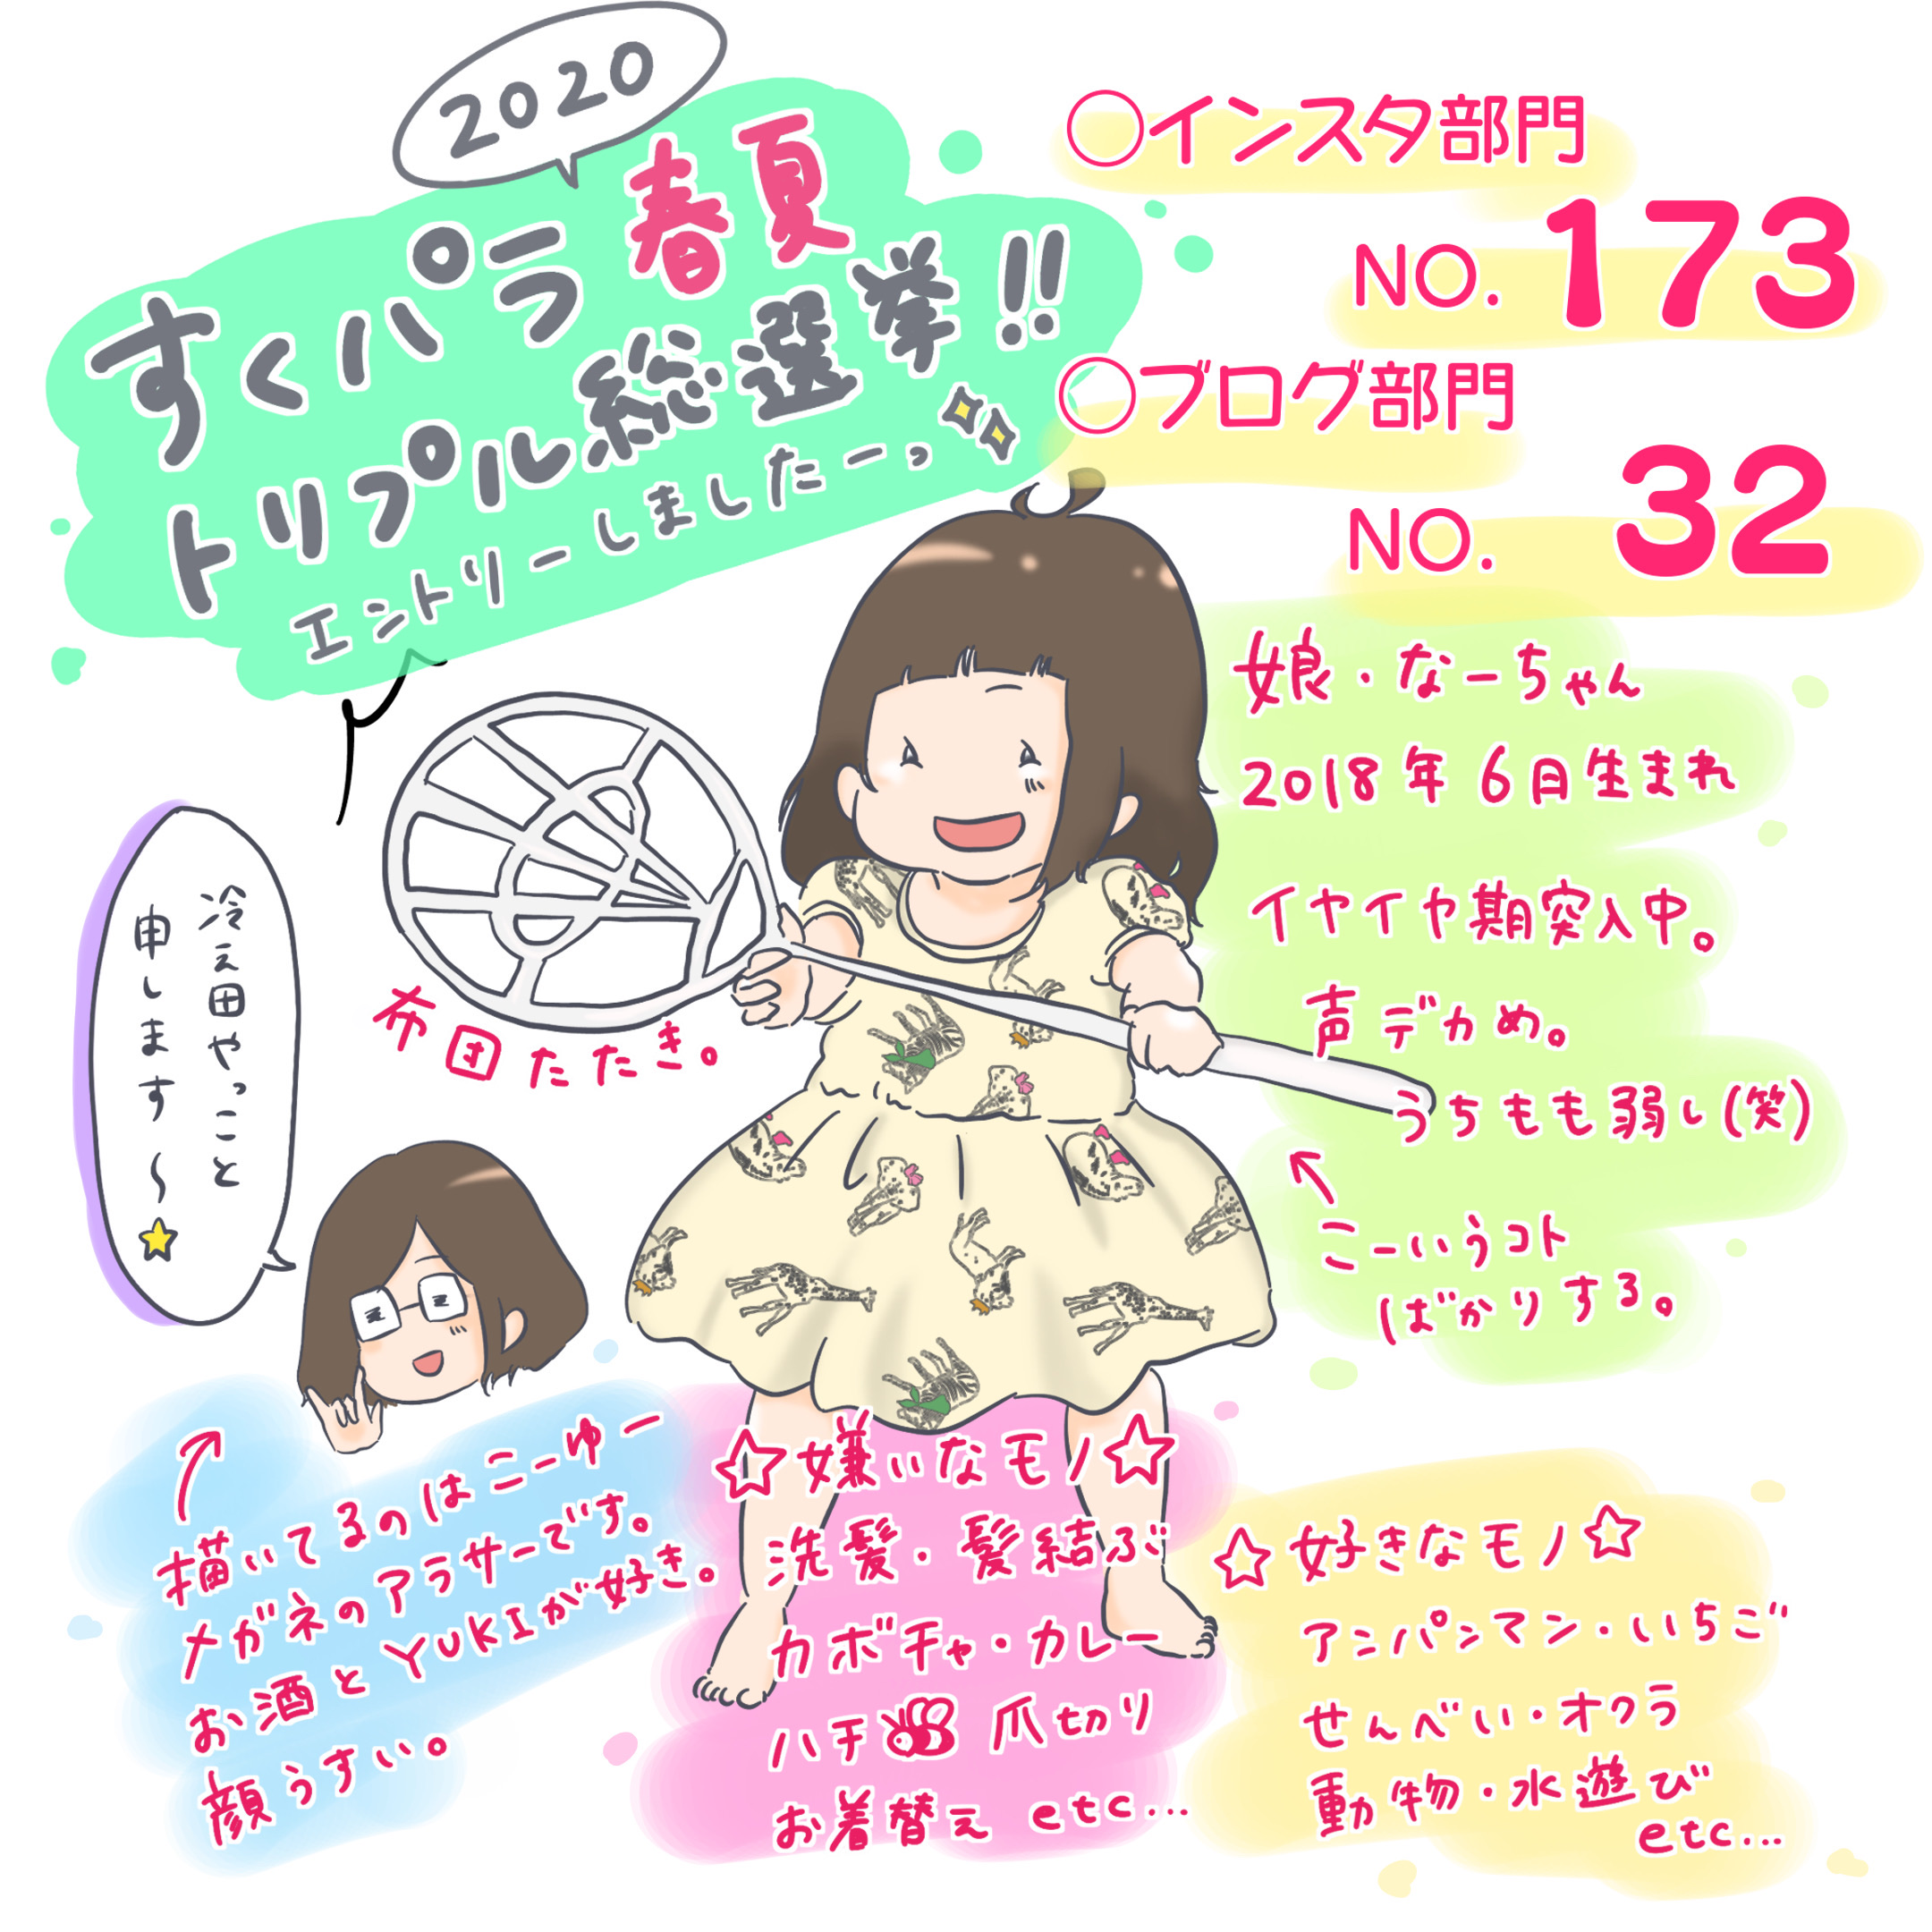 2020
すくパラ春夏
トリプル総選挙!!
エントリーしましたーっ
○インスタ部門
NO. 173
○ブログ部門
NO. 32
娘・なーちゃん
2018年6月生まれ
イヤイヤ期突入中。
声デカめ。
うちもも弱し(笑)
こーいうコト
ばかりする。
布団たたき。
冷え田やっこと
申します〜
描いてるのはこーゆー
メガネのアラサーです。
お酒とYUKIが好き。
顔うすい。
☆嫌いなモノ☆
洗髪・髪結ぶ
カボチャ・カレー
ハチ 爪切り
お着替え etc...
☆好きなモノ☆
アンパンマン・いちご
せんべい・オクラ
動物・水遊び
etc...